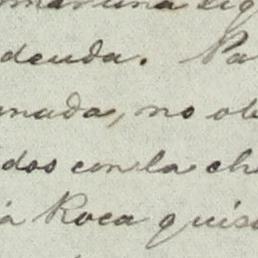 deuda. Pa
nada, no ob
dos con la ch
a Roca quiso